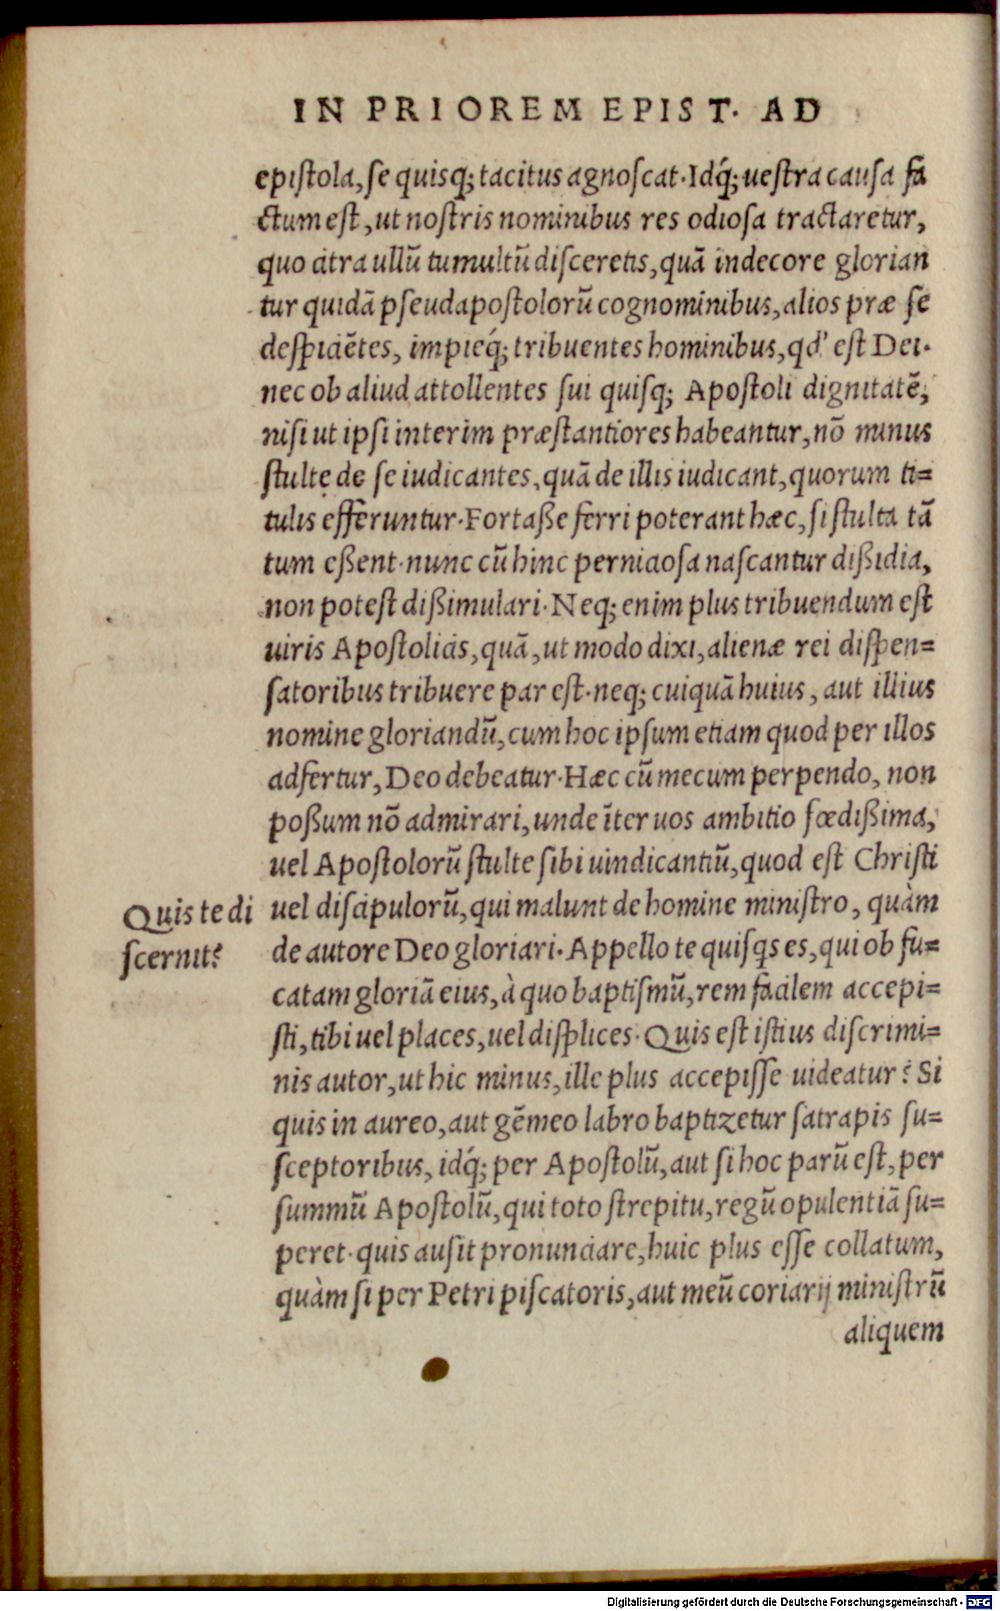 IN PRIOREM EPIST. AD
epistola, se quisq; tacitus agnoscat. Idq́; uestra causa fa
ctum est, ut nostris nominibus res odiosa tractaretur,
quo citra ullū tumultū disceretis, quā indecore glorian
tur quidā pseudapostolorū cognominibus, alios præ se
despiciētes, impieq́; tribuentes hominibus, qd' est Dei.
nec ob aliud attollentes sui quisq; Apostoli dignitatē,
nisi ut ipsi interim præstantiores habeantur, nō minus
stulte de se iudicantes, quā de illis iudicant, quorum ti=
tulis efferuntur. Fortaße ferri poterant hæc, si stulta tā
tum eßent. nunc cū hinc perniciosa nascantur dißidia,
non potest dißimulari. Neq; enim plus tribuendum est
uiris Apostolicis, quā, ut modo dixi, alienæ rei dispen=
satoribus tribuere par est. neq; cuiquā huius, aut illius
nomine gloriandū, cum hoc ipsum etiam quod per illos
adfertur, Deo debeatur. Hæc cū mecum perpendo, non
poßum nō admirari, unde īter uos ambitio fœdißima,
uel Apostolorū stulte sibi uindicantiū, quod est Christi
uel discipulorū, qui malunt de homine ministro, quàm
Quis te di
scernit?
de autore Deo gloriari. Appello te quisqs es, qui ob fu=
catam gloriā eius, à quo baptismū, rem facilem accepi=
sti, tibi uel places, uel displices. Quis est istius discrimi=
nis autor, ut hic minus, ille plus accepisse uideatur? Si
quis in aureo, aut gēmeo labro baptizetur satrapis su=
sceptoribus, idq́; per Apostolū, aut si hoc parū est, per
summū Apostolū, qui toto strepitu, regū opulentiā su=
peret. quis ausit pronunciare, huic plus esse collatum,
quàm si per Petri piscatoris, aut meū coriarij ministrū
aliquem
Digitalisierung gefördert durch die Deutsche Forschungsgemeinschaft - DFG